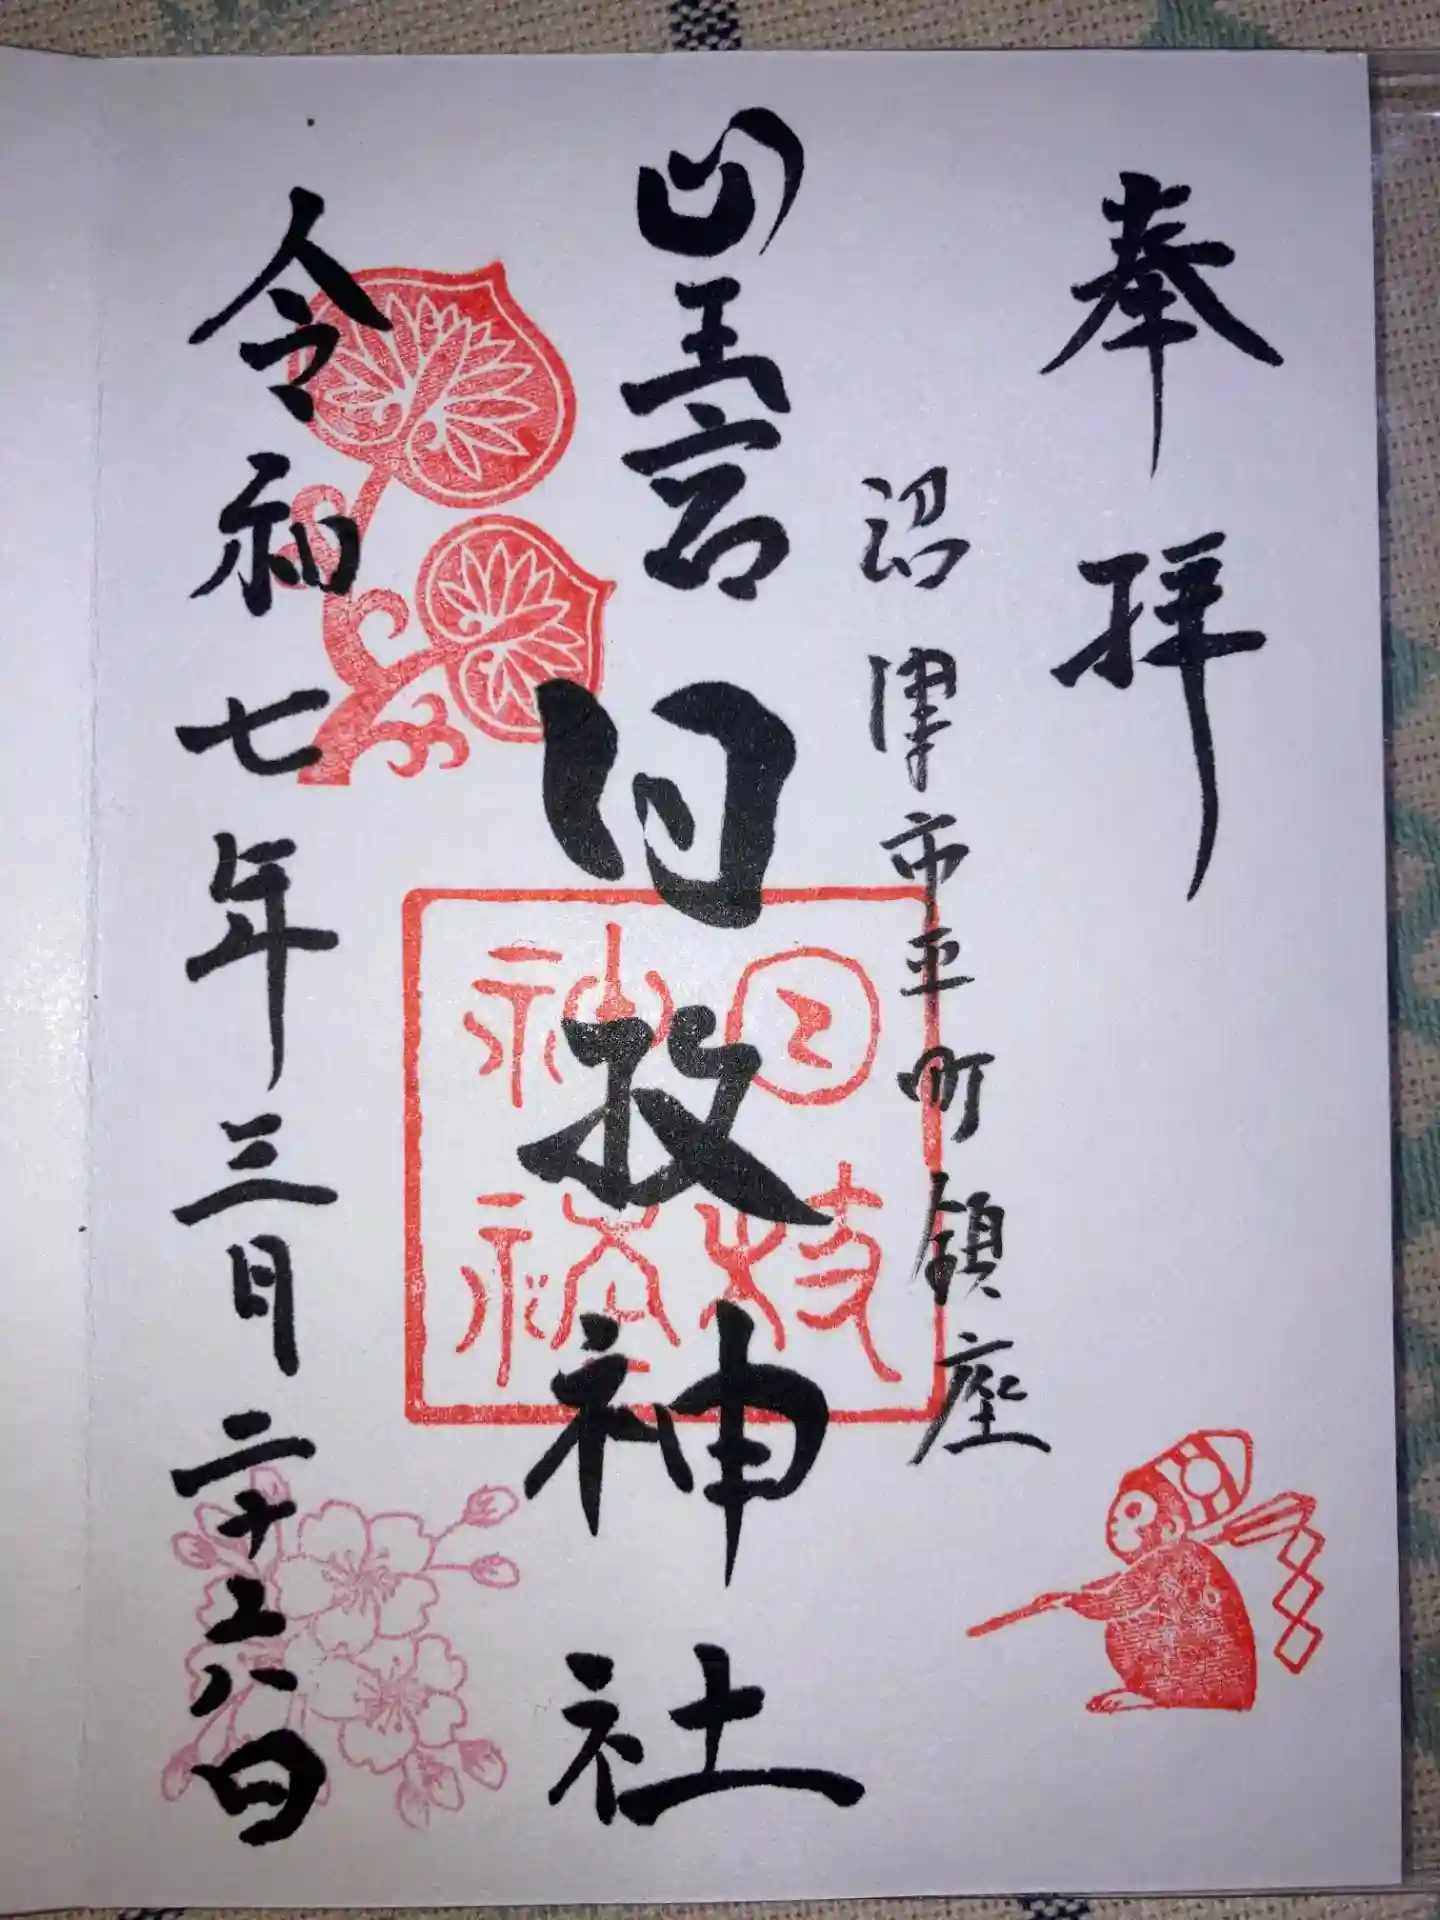 奉拝
沼津市平町鎮座
山王宮日枝神社
令和七年三月二十六日
日枝
神社